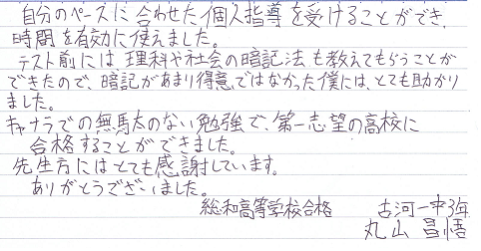 自分のペースに合わせた個人指導を受けることができ、
時間を有効に使えました。
テスト前には、理科や社会の暗記法も教えてもらうことが
できたので、暗記があまり得意ではなかった僕には、とても助かり
ました。
キャナラでの無馬太のない勉強で、第一志望の高校に
合格することができました。
先生方にはとても感謝しています。
ありがとうございました。
総和高等学校合格 古河一中3年
丸山 昌悟